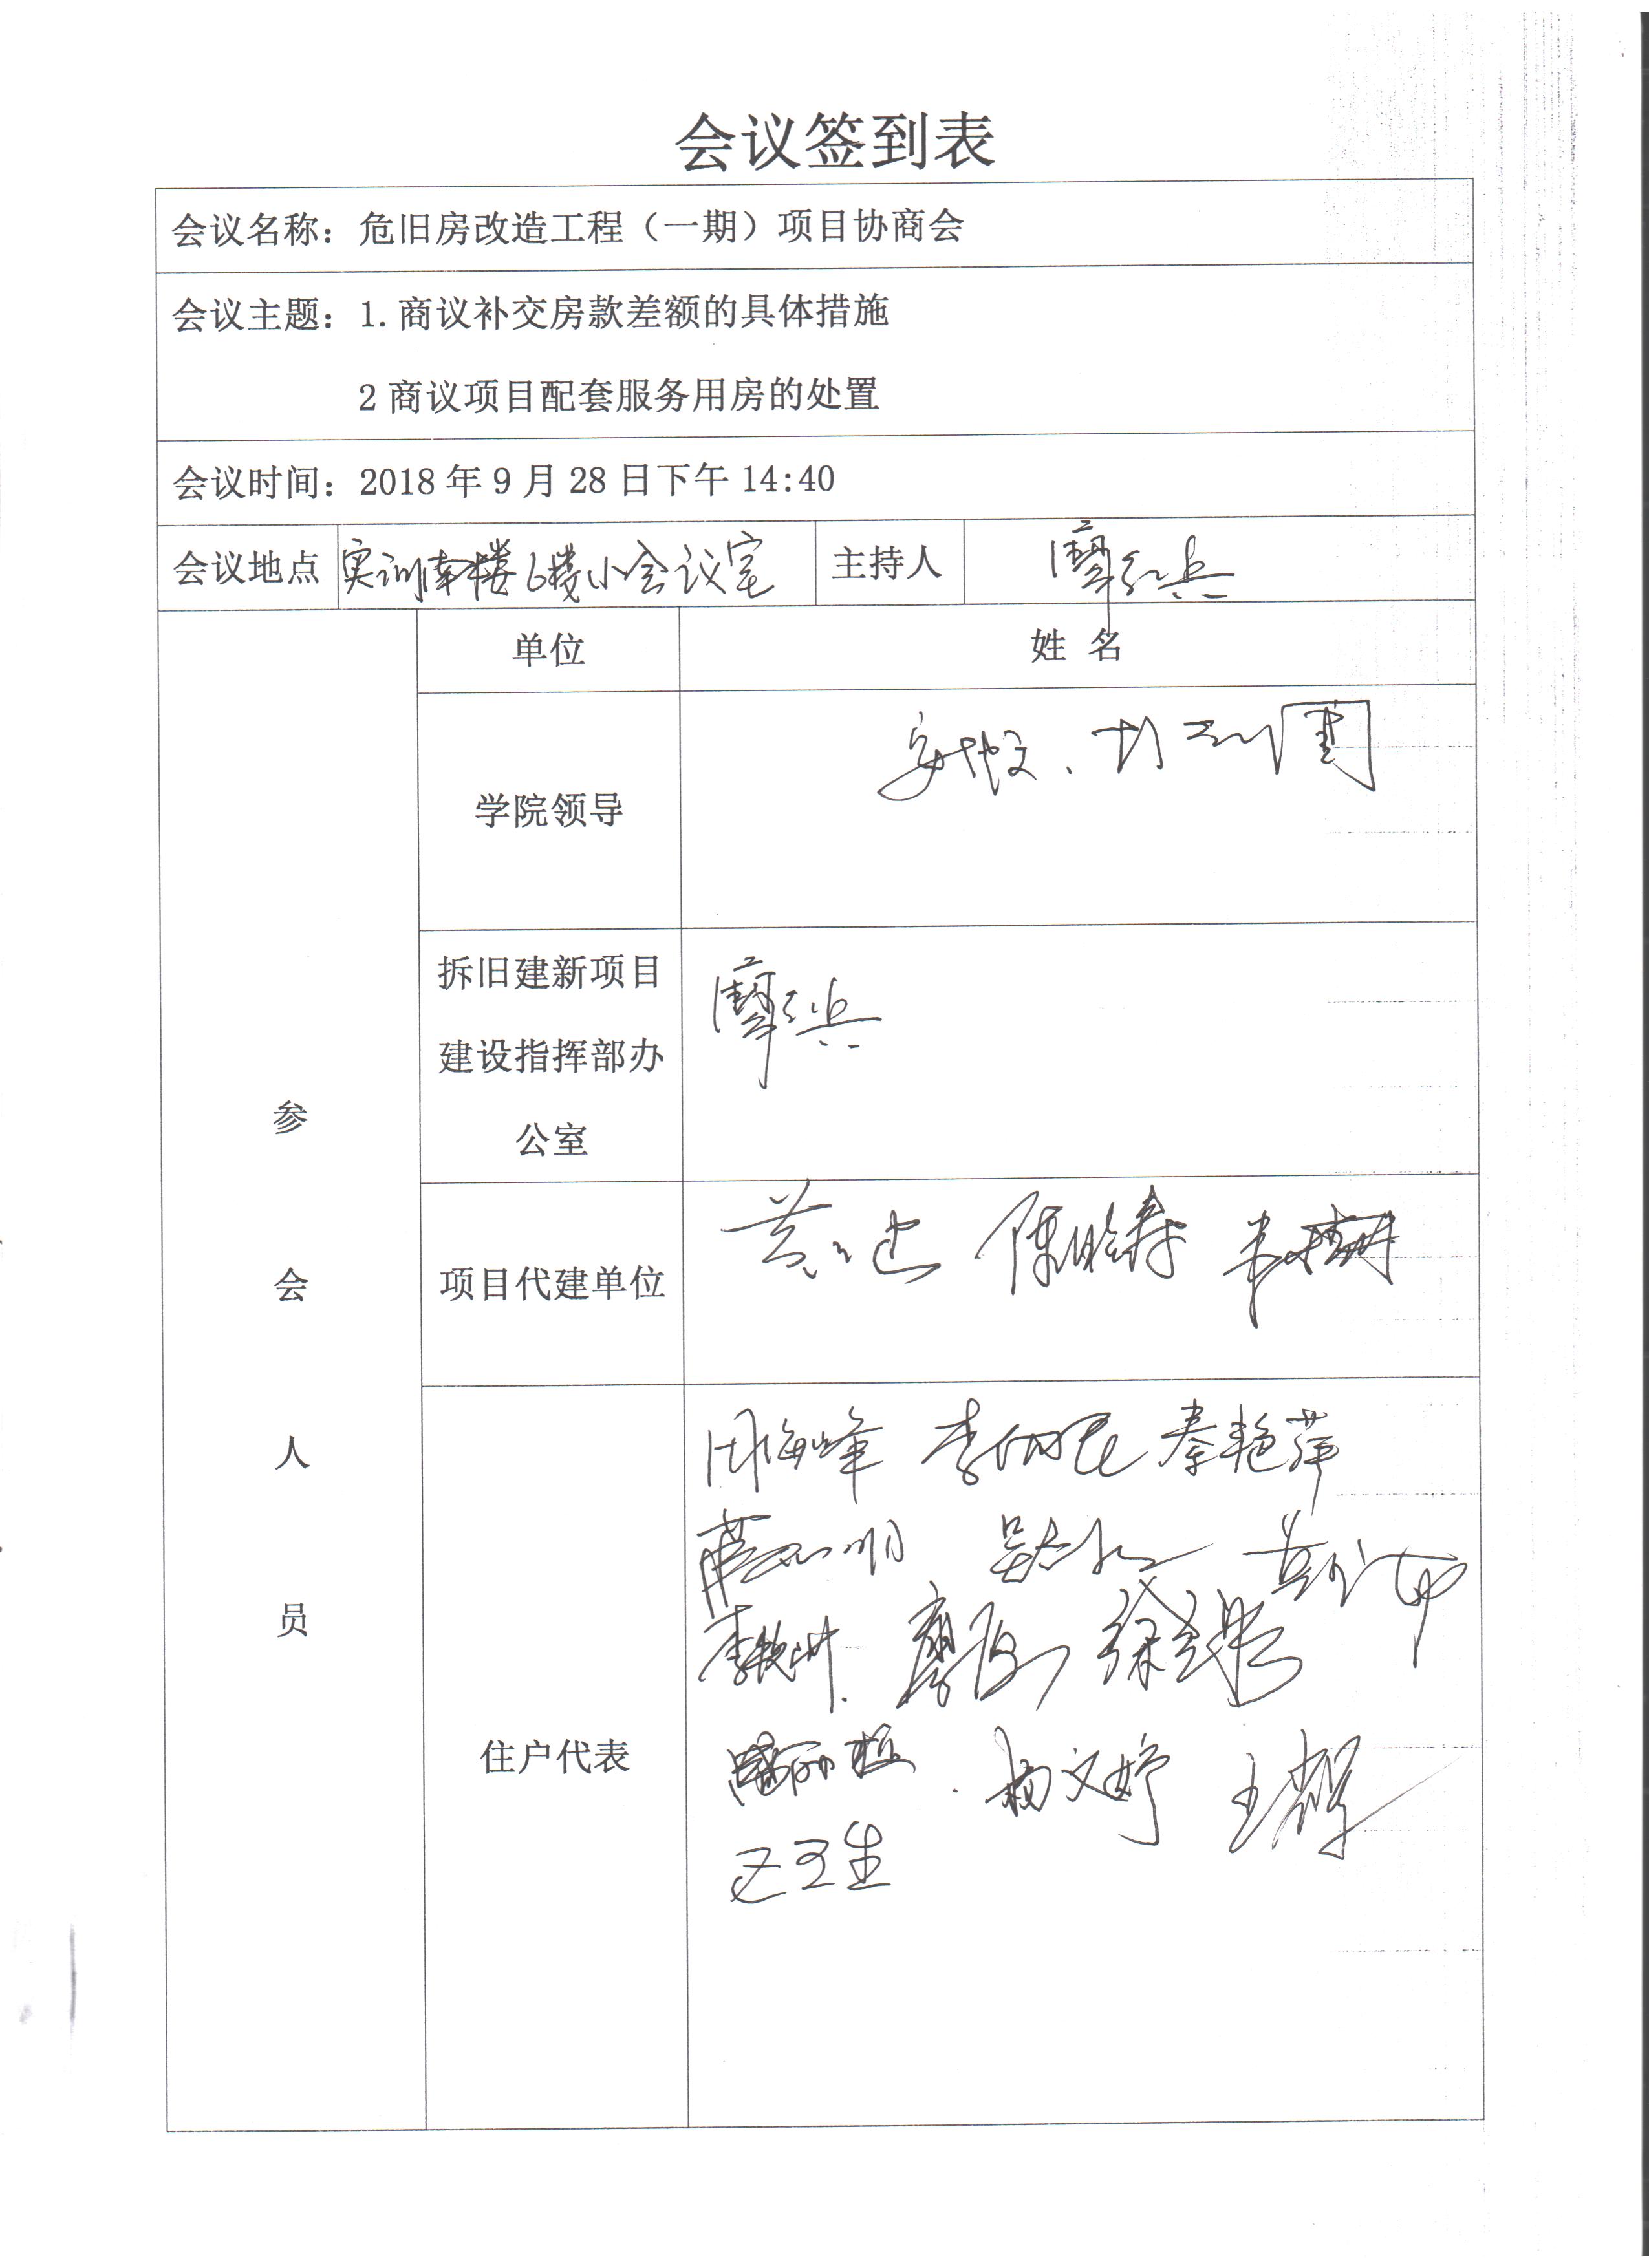 会议签到表
会议名称：危旧房改造工程（一期）项目协商会
会议主题：1.商议补交房款差额的具体措施
2 商议项目配套服务用房的处置
会议时间：2018 年 9 月 28 日下午 14:40
会议地点 实训南楼6楼小会议室 主持人 廖红兵
参会人员
单位 姓 名
学院领导
拆旧建新项目
建设指挥部办
公室
廖红兵
项目代建单位
住户代表
周海峰 秦艳萍
杨文婷 王辉